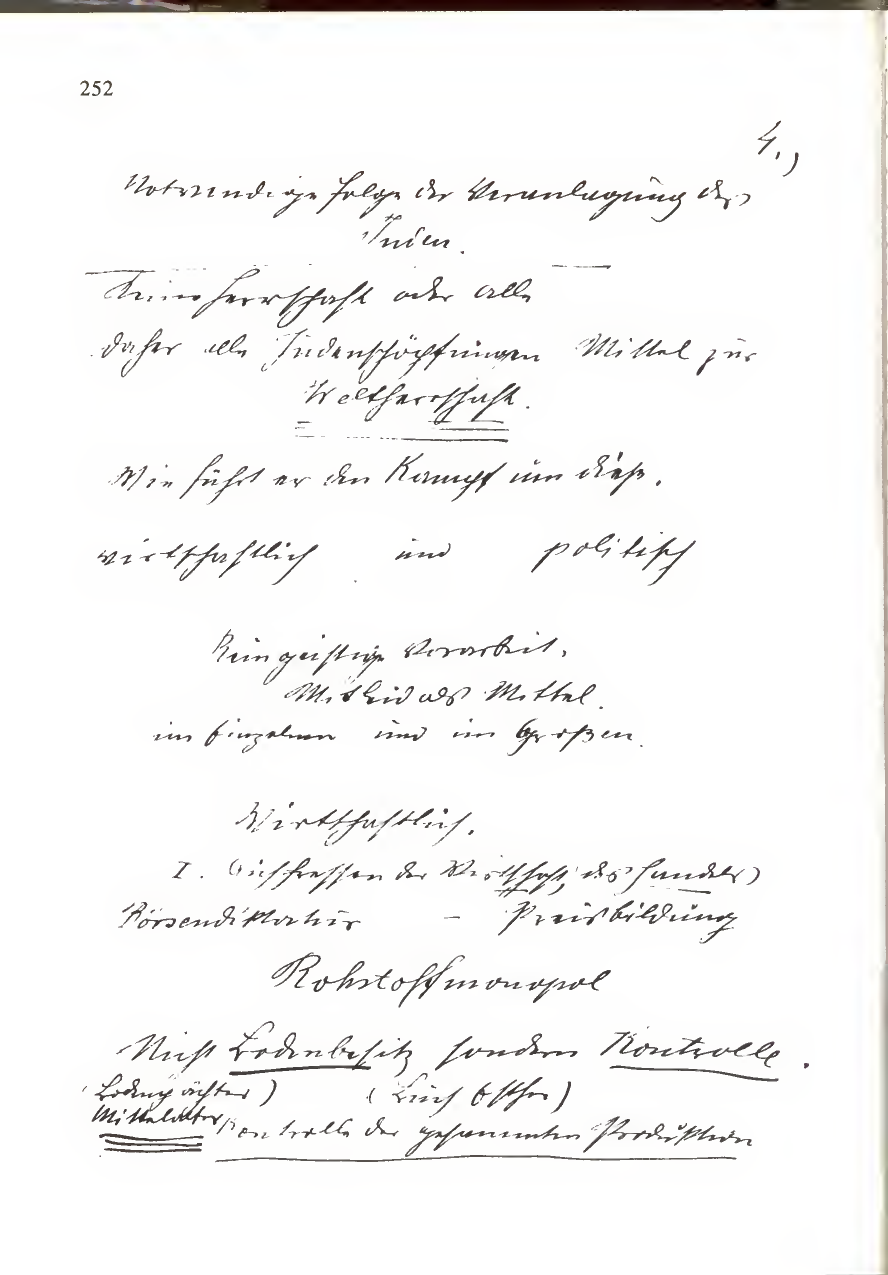 252
4.)
Notwendige Folge der Veranlagung des
Juden.
Keine Herrschaft oder alle
daher alle Judenschöpfungen Mittel zur
Weltherrschaft.
Wie führt er den Kampf um diese.
wirtschaftlich und politisch
Rein geistige Vorarbeit.
Mitleid als Mittel.
im Einzelnen und im Großen.
Wirtschaftlich.
I. der Wirtschaft, des Handels
Börsendiktatur – Preisbildung
Rohstoffmonopol
Nicht Bodenbesitz sondern Kontrolle.
(Bodenpächter) (Buch Esther)
Mittelalter
Kontrolle der gesammten Produktion